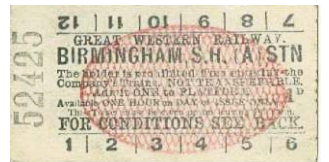 7 | 8 | 9 | 10 | 11 | 12
GREAT WESTERN RAILWAY.
BIRMINGHAM, S.H. (A) STN
The holder is prohibited from entering the
Company's Trains. NOT TRANSFERABLE.
Admit ONE to PLATFORM. 1D
Available ONE HOUR on DAY of ISSUE ONLY.
FOR CONDITIONS SEE BACK.
1 | 2 | 3 | 4 | 5 | 6
52425